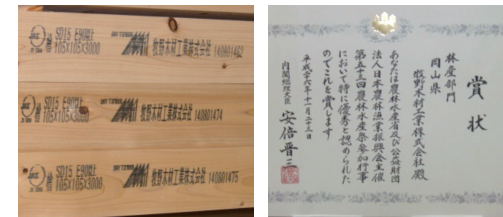 檜 SD15 E90以上
105X105X3000
牧野木材工業株式会社 140801462
檜 SD15 E90以上
105X105X3000
牧野木材工業株式会社 140801474
檜 SD15 E90以上
105X105X3000
牧野木材工業株式会社 140801475
賞状
林産部門
岡山県
牧野木材工業株式会社殿
あなたは農林水産省及び公益財団
法人日本農林漁業振興会主催
第五十三回農林水産祭参加行事
において特に優秀と認められた
のでこれを賞します
平成二十六年十一月二十三日
内閣総理大臣 安倍晋三